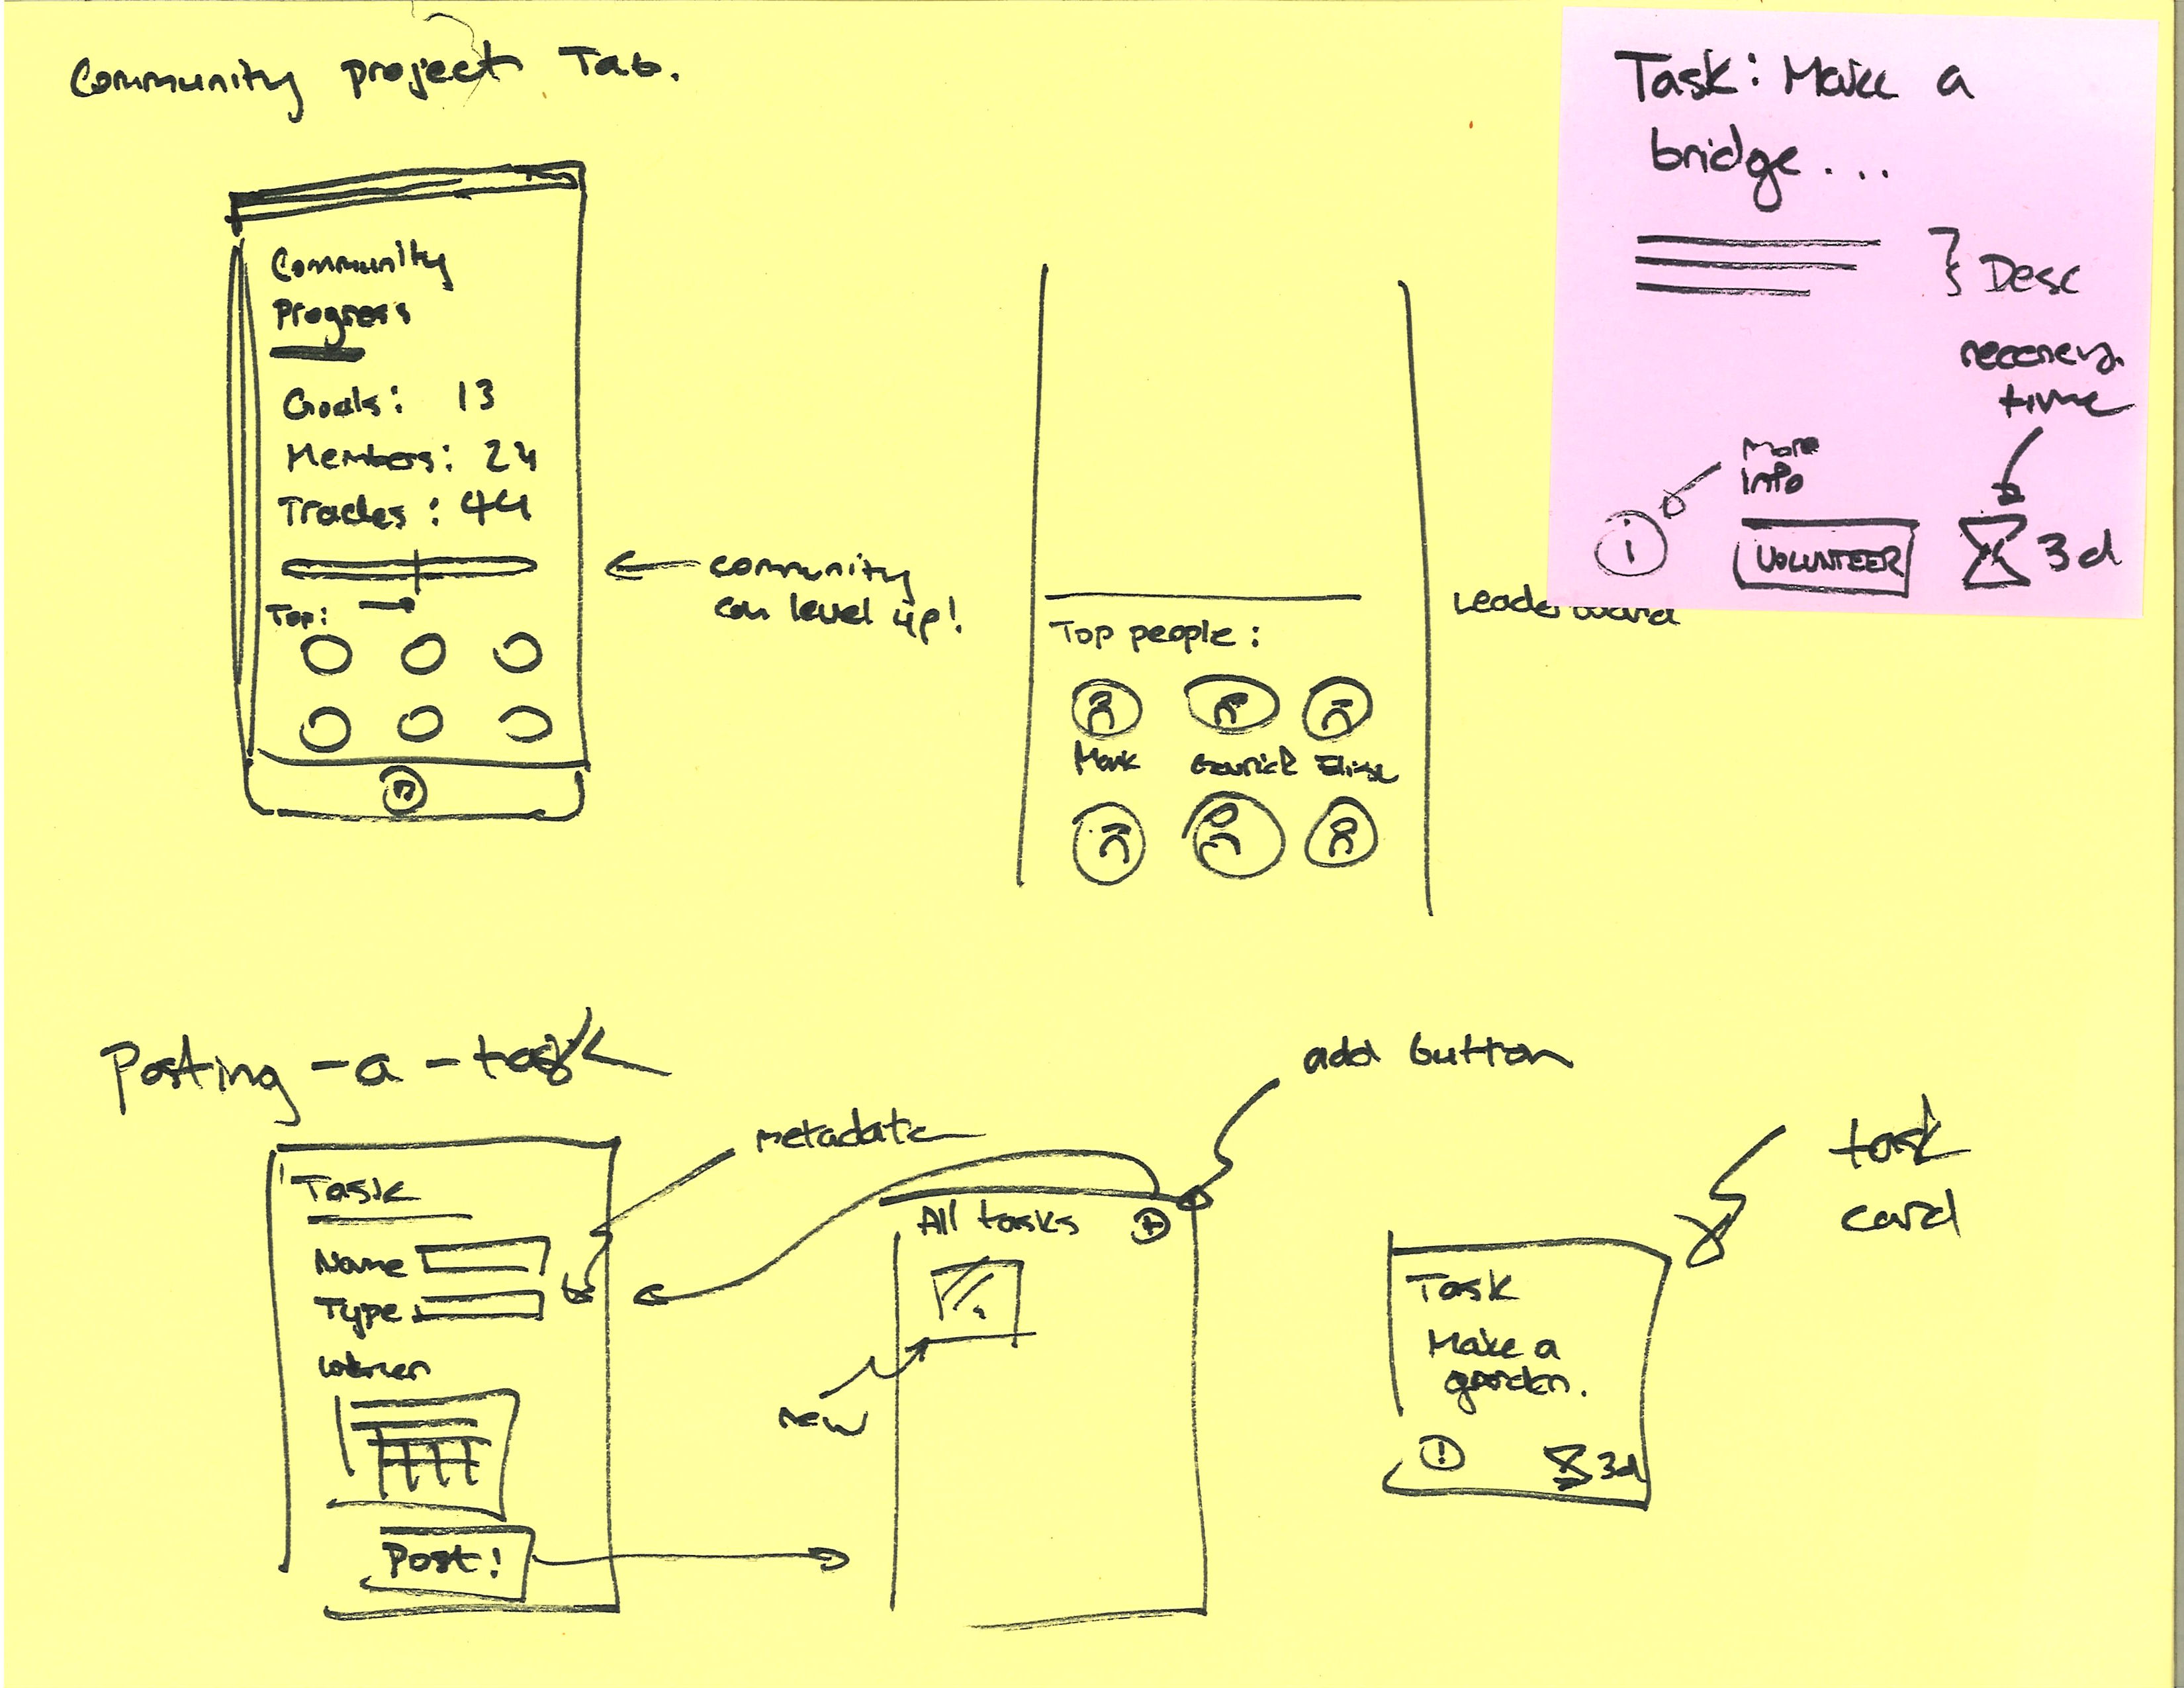 Community project Tab.
Community
Progress
Goals: 13
Members: 24
Trades: 44
Top:
community
can level up!
Top people:
Mark
Leaderboard
Task: Make a
bridge...
Desc
time
More
info
i
VOLUNTEER
3d
Posting-a-task
Task
Name
Type:
Post!
metadata
add button
All tasks
+
new
task
card
Task
Make a
garden.
!
3d